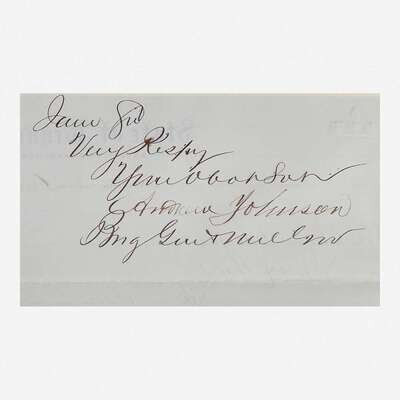 I am Sir
Very Respy
Your Obdt Svt
Andrew Johnson
Brig Genl & Mil Gov